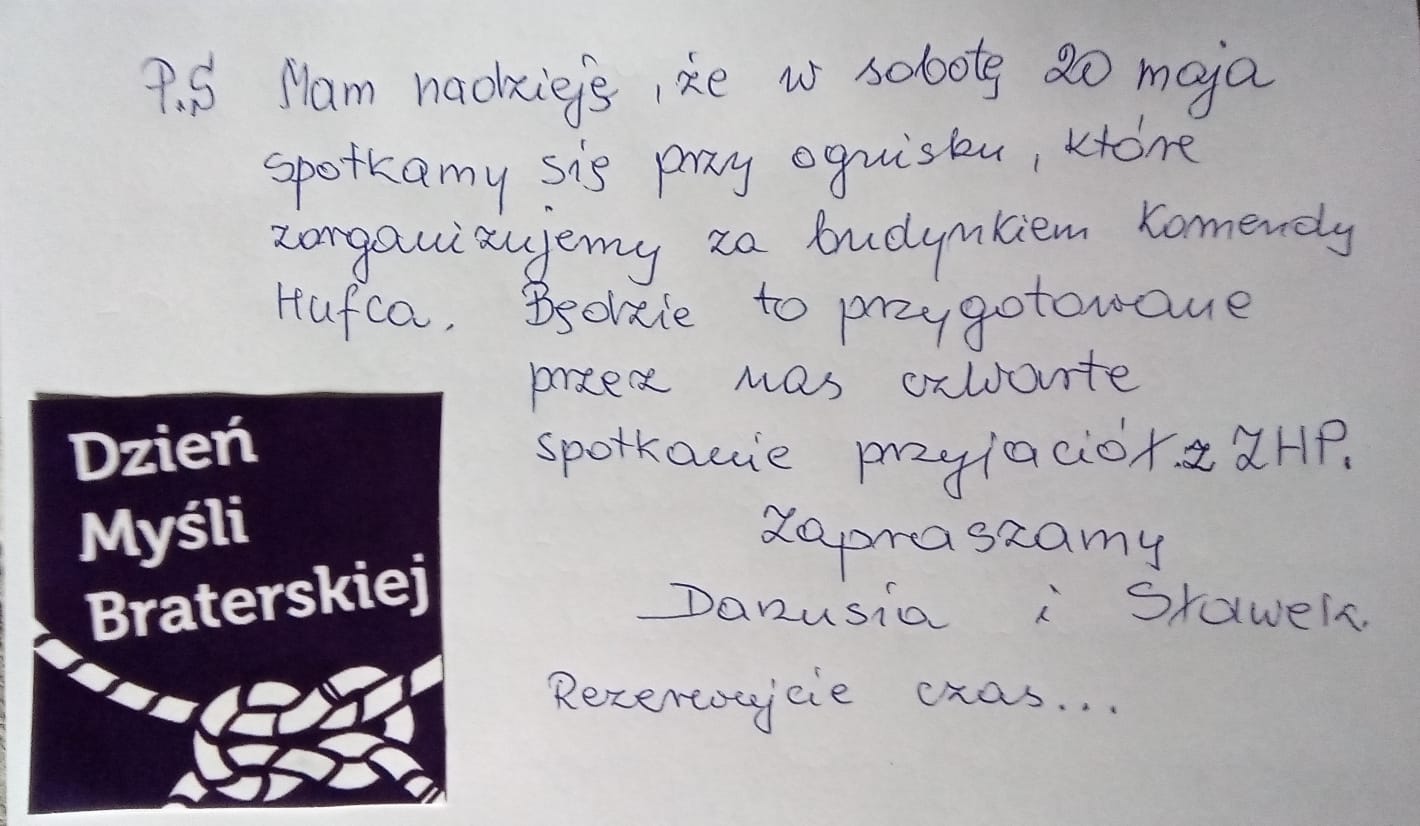 P.S Mam nadzieję, że w sobotę 20 maja
spotkamy się przy ognisku, które
zorganizujemy za budynkiem Komendy
Hufca. Będzie to przygotowane
przez nas czwarte
spotkanie przyjaciół z ZHP.
Zapraszamy
Danusia i Sławek.
Rezerwujcie czas...
Dzień
Myśli
Braterskiej